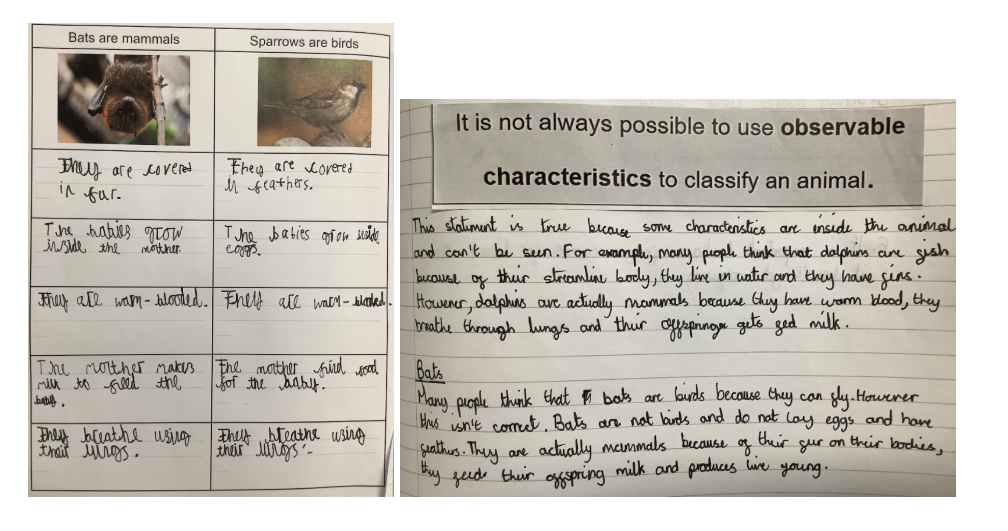 Bats are mammals
Sparrows are birds
They are covered
in fur.
They are covered
in feathers.
The babies grow
inside the mother.
The babies grow inside
eggs.
They are warm-blooded.
They are warm-blooded.
The mother makes
milk to feed the
baby.
The mother find food
for the baby.
They breathe using
their lungs.
They breathe using
their lungs.
It is not always possible to use observable
characteristics to classify an animal.
This statement is true because some characteristics are inside the animal
and can't be seen. For example, many people think that dolphins are fish
because of their streamline body, they live in water and they have fins.
However, dolphins are actually mammals because they have warm blood, they
breathe through lungs and their offspring gets fed milk.
Bats
Many people think that bats are birds because they can fly. However
this isn't correct. Bats are not birds and do not lay eggs and have
feathers. They are actually mammals because of their fur on their bodies,
they feeds their offspring milk and produces live young.